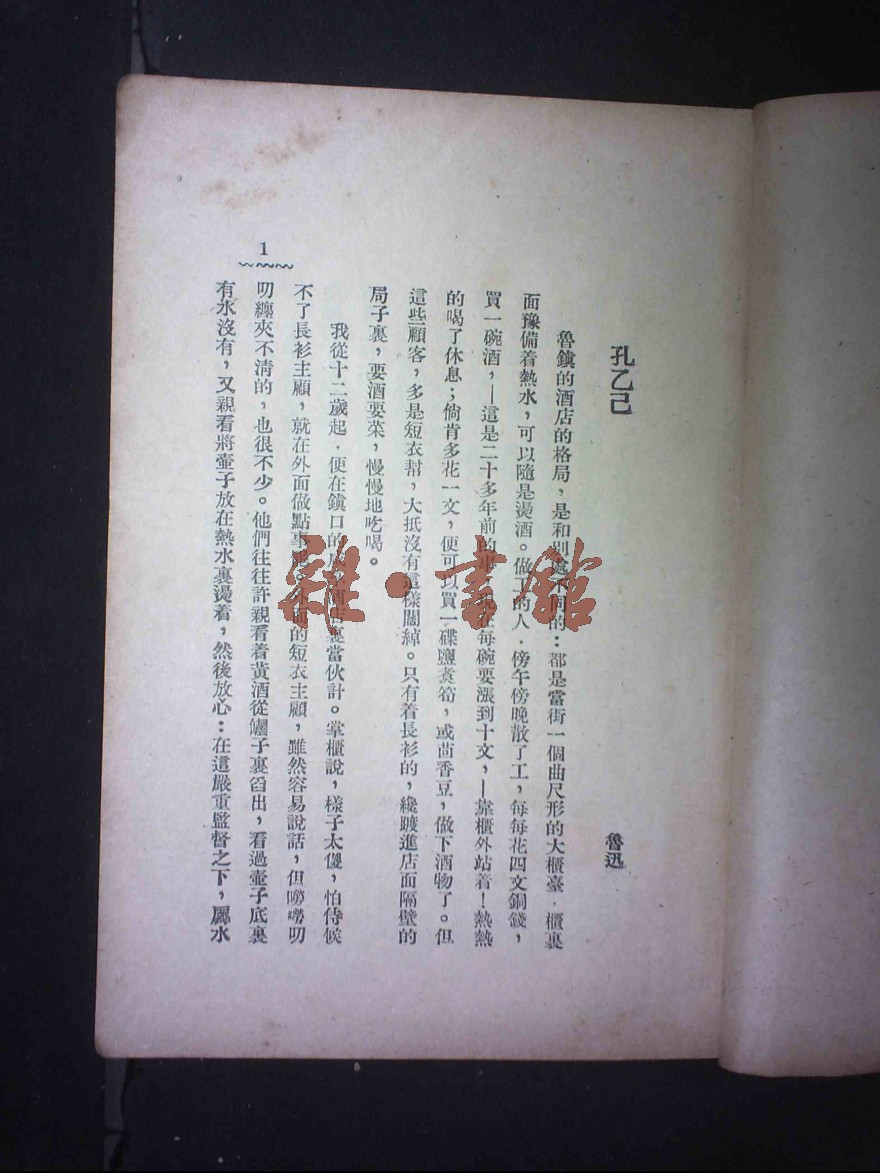 孔乙己
魯迅
魯鎭的酒店的格局，是和別處不同的：都是當街一個曲尺形的大櫃臺．櫃裏
面豫備着熱水，可以隨是燙酒。做工的人．傍午傍晚散了工，每每花四文銅錢，
買一碗酒，—這是二十多年前的事，現在每碗要漲到十文，—靠櫃外站着！熱熱
的喝了休息；倘肯多花一文，便可以買一碟鹽煮筍，或茴香豆，做下酒物了。但
這些顧客，多是短衣幫，大抵沒有這樣闊綽。只有着長衫的，纔踱進店面隔壁的
局子裏，要酒要菜，慢慢地吃喝。
我從十二歲起．便在鎭口的咸亨酒店裏當伙計。掌櫃說，樣子太傻，怕侍候
不了長衫主顧，就在外面做點事罷。外面的短衣主顧，雖然容易說話，但嘮嘮叨
叨纏夾不清的，也很不少。他們往往許親看着黃酒從罎子裏舀出，看過壺子底裏
有水沒有，又親看將壺子放在熱水裏燙着，然後放心：在這嚴重監督之下，羼水
1
雜·書館